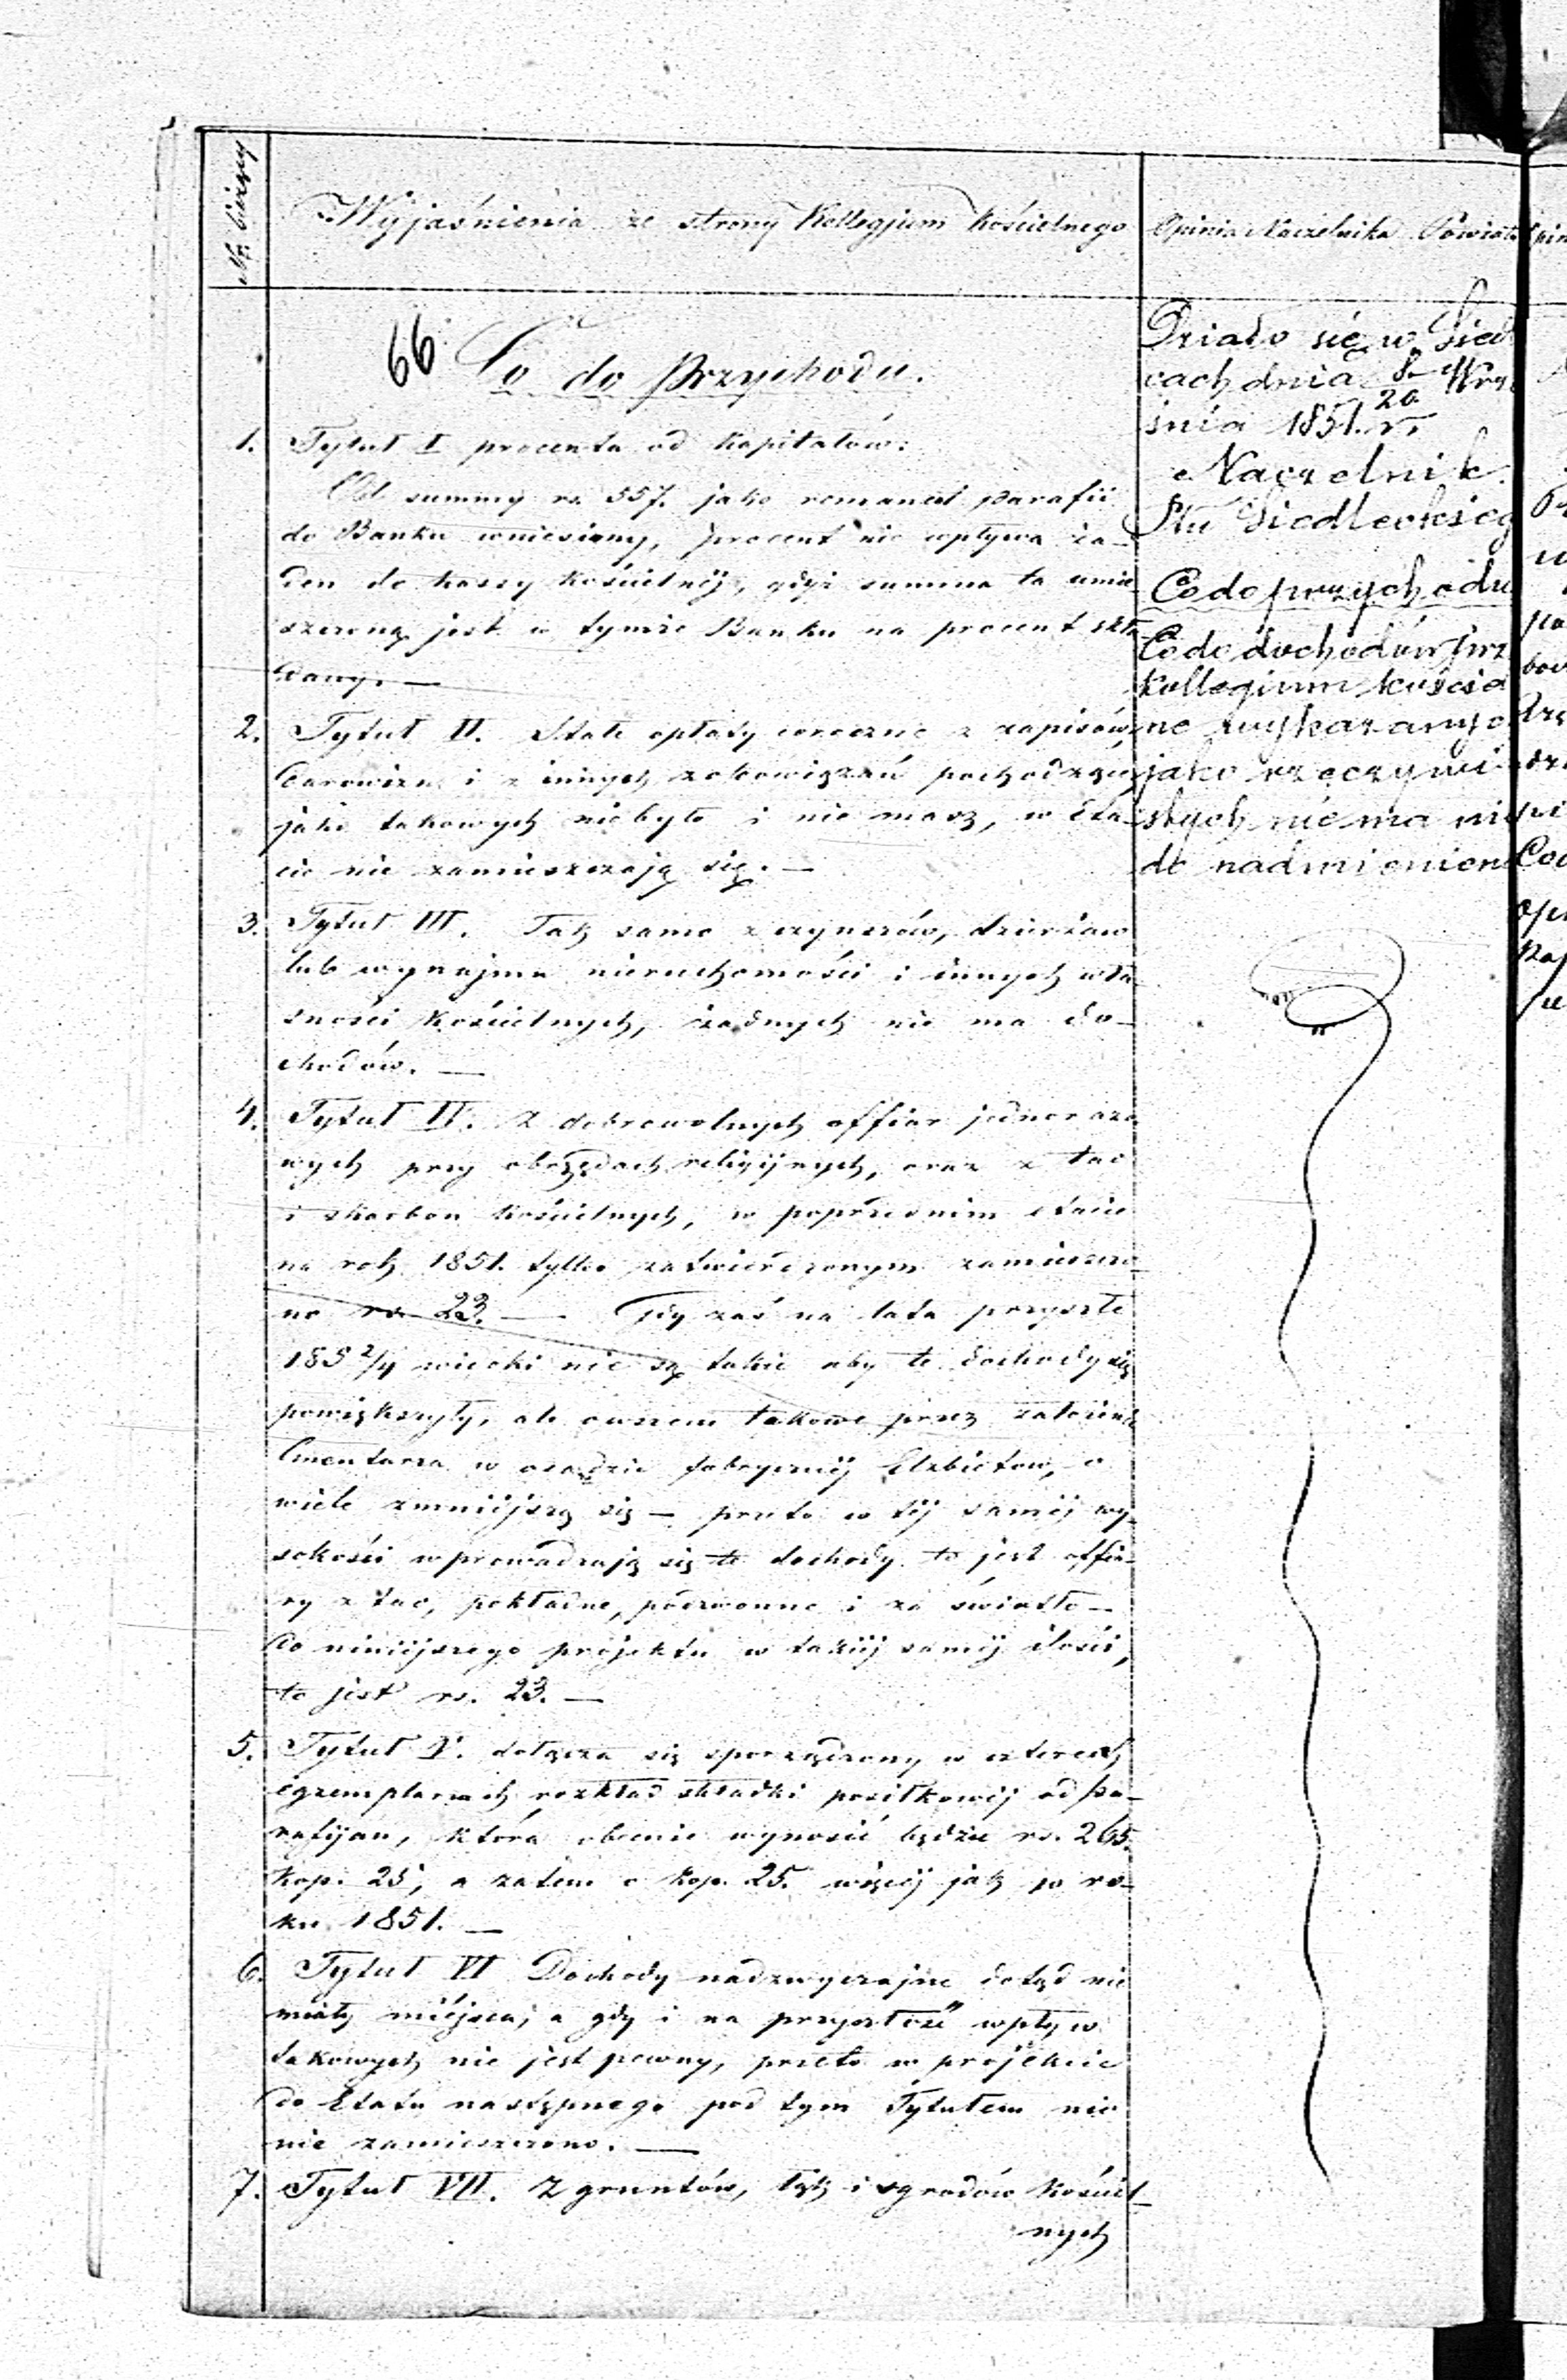 № bieżący
Wyjaśnienia ze strony Kollegjum Kościelnego
66 Co do Przychodu.
1. Tytuł I procenta od kapitałów:
Od summy rs. 557. jako remanent parafii
do Banku wniesiony, procent nie wpływa ża-
den do kassy kościelnéj, gdyż summa ta umie-
szczoną jest w tymże Banku na procent skła-
dany. —
2. Tytuł II. Stałe opłaty coroczne z zapisów,
darowizn i z innych zobowiązań pochodzące,
jako takowych niebyło i nie masz, w eta-
cie nie zamieszczają się. —
3. Tytuł III. Tak samo z czynszów, dzierżaw
lub wynajmu nieruchomości i innych wła-
sności kościelnych, żadnych nie ma do-
chodów. —
4. Tytuł IV. Z dobrowolnych offiar jednorazo
wych przy obrzędach religijnych, oraz z tac
i skarbon kościelnych, w poprzednim etacie
na rok 1851. tylko zatwierdzonym zamieszczo-
no rs. 23. — Gdy zaś na lata przyszłe
185 2/4 widoki nie są takie aby te dochody się
powiększyły, ale owszem takowe przez założenie
Cmentarza w osadzie fabrycznéj Elżbietów, o
wiele zmniejszą się — przeto w téj saméj wy-
sokości wprowadzają się te dochody to jest offia-
ry z tac, pokładne, podzwonne i za światło —
do niniejszego projektu w takiéj saméj ilości,
to jest rs. 23. —
5. Tytuł V. dołącza się sporządzony w czterech
egzemplarzach rozkład składki posiłkowéj od Pa-
rafijan, która obecnie wynosić będzie rs. 265.
kop. 25, a zatem o kop. 25. więcéj jak w ro-
ku 1851. —
6. Tytuł VI Dochody nadzwyczajne dotąd nie
miały miéjsca, a gdy i na przyszłość wpływ
takowych nie jest pewny, przeto w projekcie
do Etatu następnego pod tym Tytułem nic
nie zamieszczono. —
7. Tytuł VII. Z gruntów, łąk i ogrodów kościel-
nych
Opinia Naczelnika Powiatu
Działo się w Siedl
cach dnia 8/20 Wrze
śnia 1851. r.
Naczelnik
Ptu Siedleckieg
Co do przychodu
Co do dochodów prz
Kollegium kościel
ne wykazanych
jako rzeczywi-
stych nie ma nic
do nadmienien